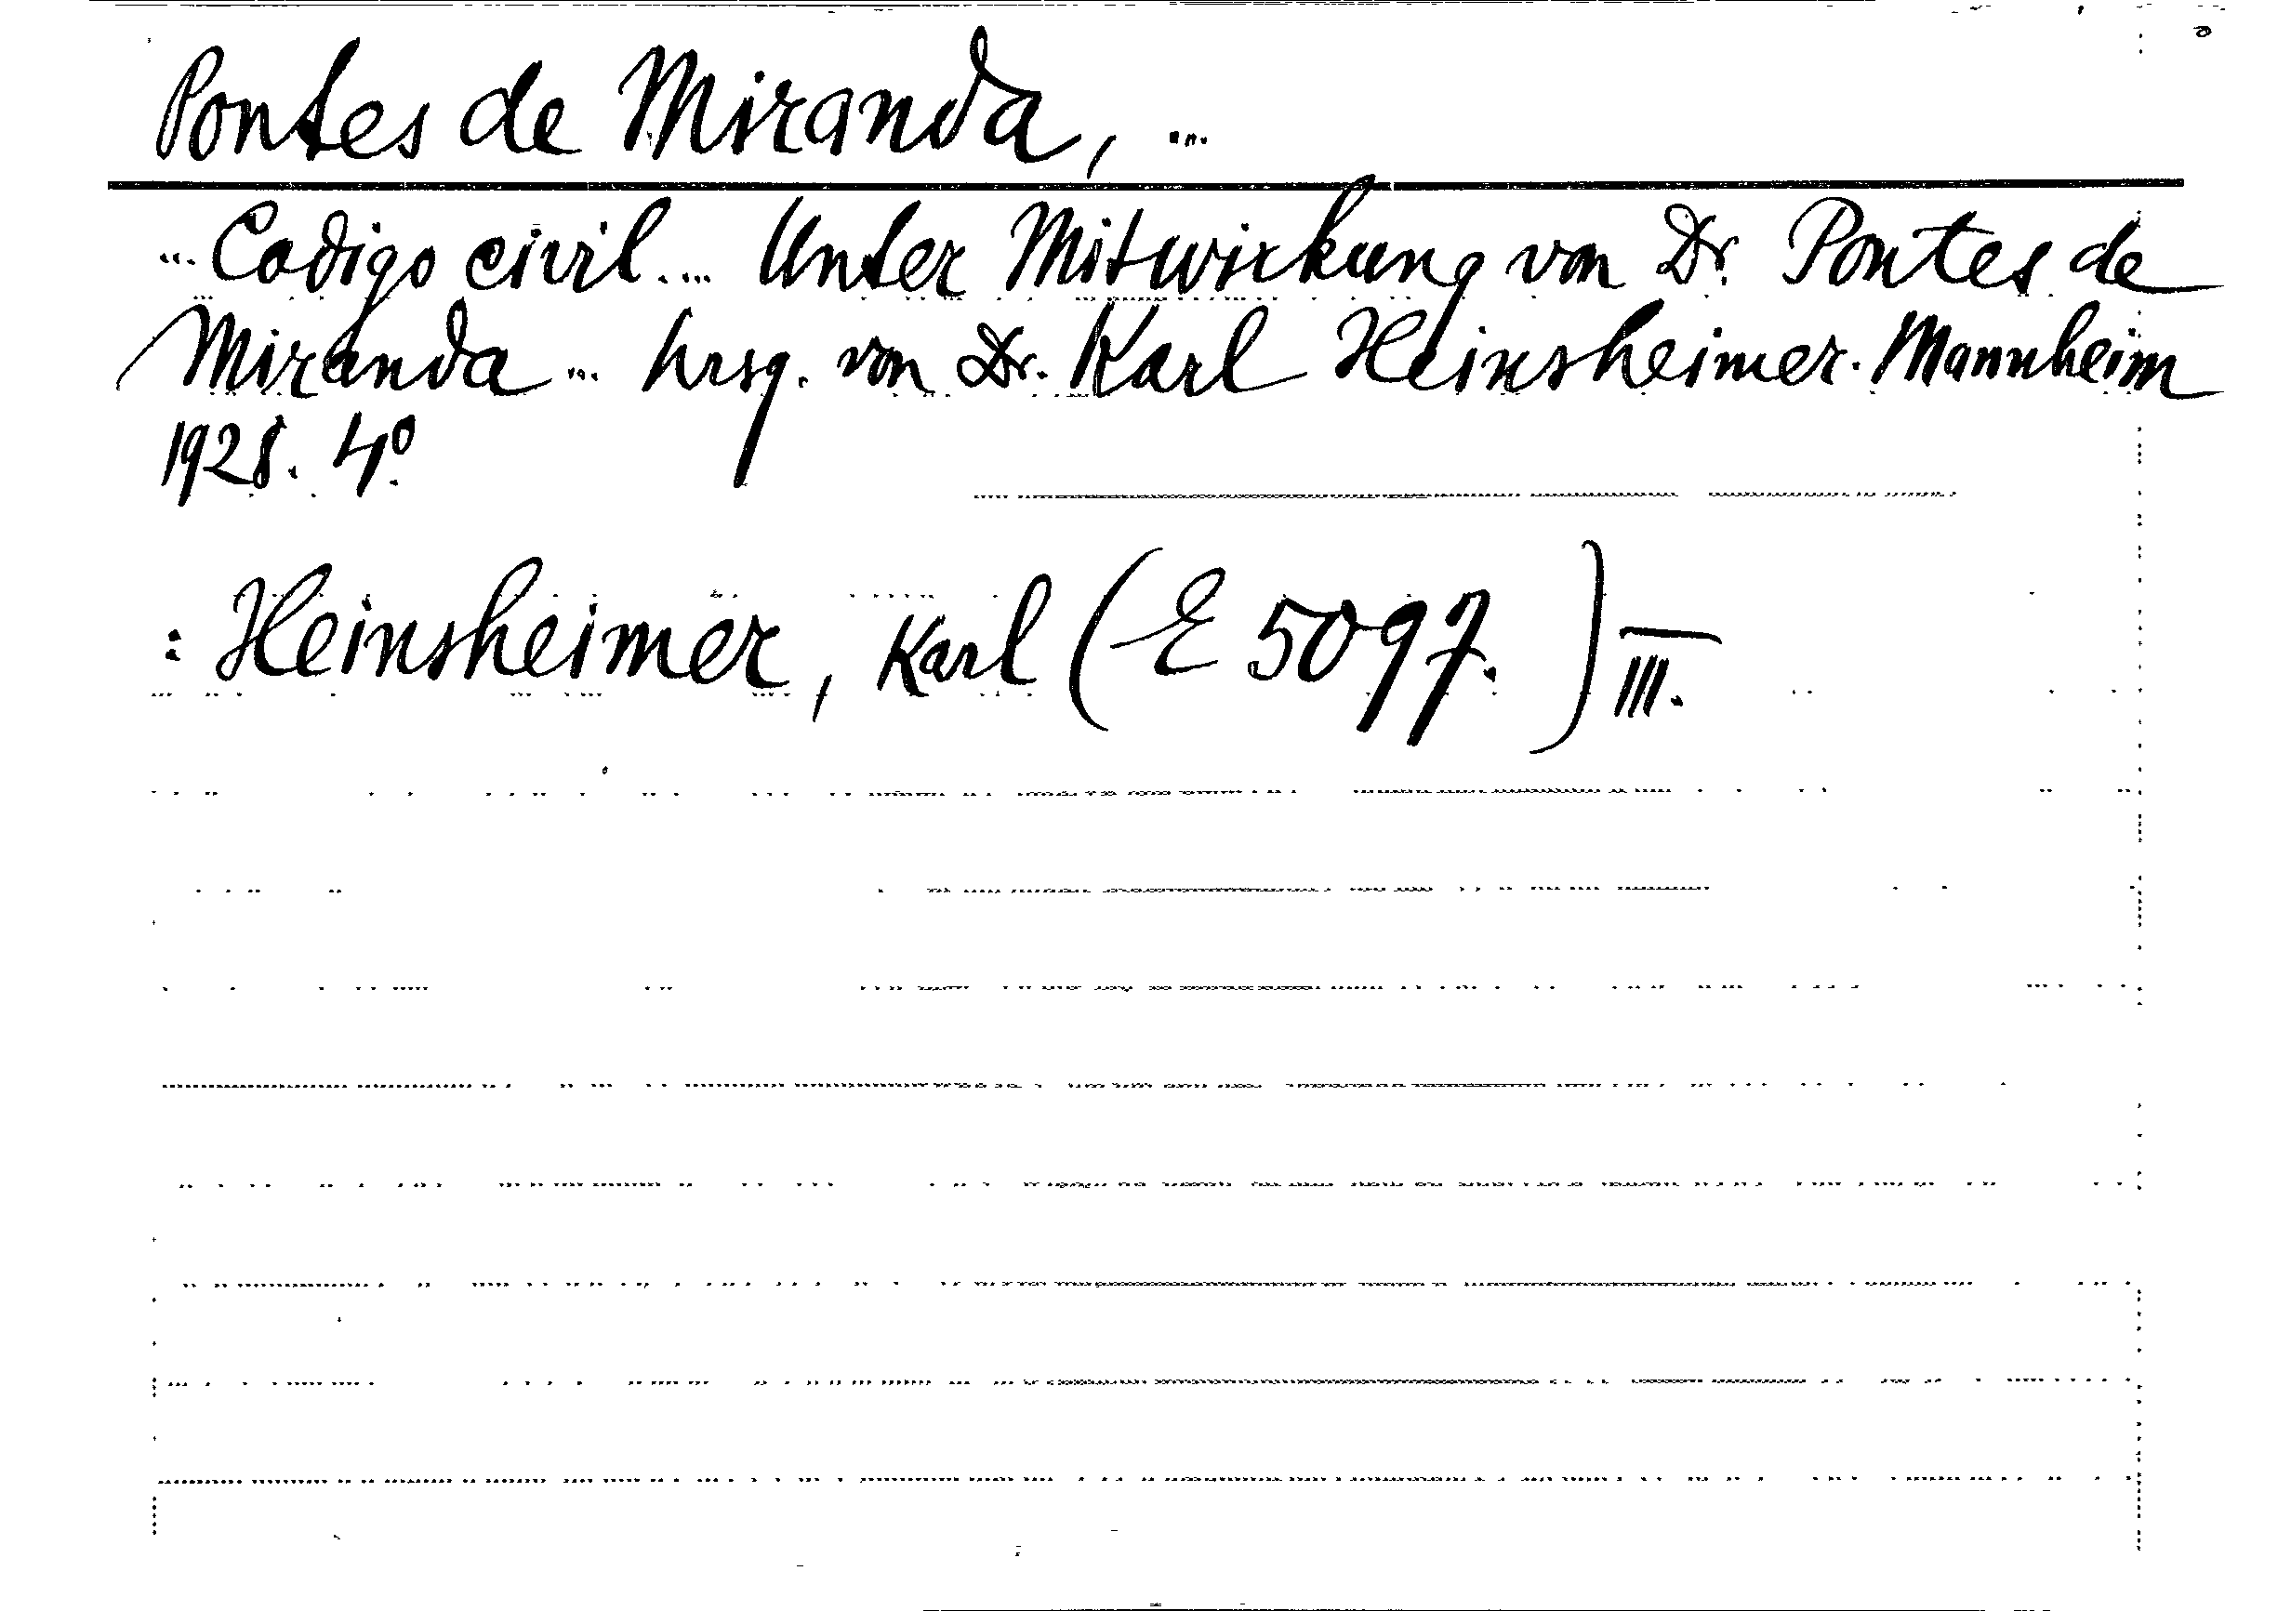 Pontes de Miranda, ...
... Codigo civil. ... Unter Mitwirkung von Dr. Pontes de
Miranda ... hrsg. von Dr. Karl Heinsheimer. Mannheim
1928. 4°.
: Heinsheimer, Karl (E 5097.) III.